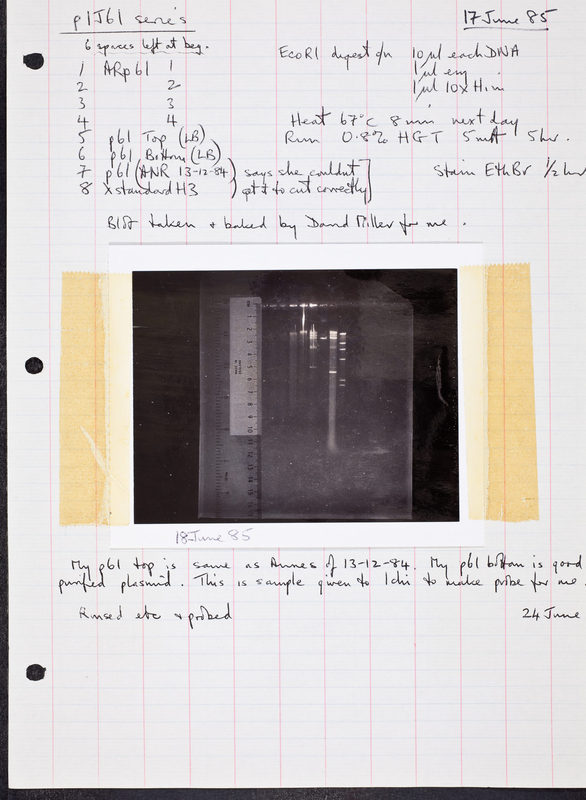 p1J61 series
17 June 85
6 spaces left at beg.
1 ARp61 1
2 2
3 3
4 4
5 p61 Top (LB)
6 p61 Bottom (LB)
7 p61 (ANR 13-12-84) says she couldn't
8 λ standard H3 get it to cut correctly
EcoRI digest o/n 10 µl each DNA
1 µl enz
1 µl 10x H
Heat 67°C 8 min next day
Run 0.8% HGT 5mA 5hr.
Stain EthBr ½ hr
Blot taken + baked by David Miller for me.
18 June 85
My p61 top is same as Annes of 13-12-84. My p61 bottom is good
purified plasmid. This is sample given to Ichi to make probe for me.
Rinsed etc + probed
24 June